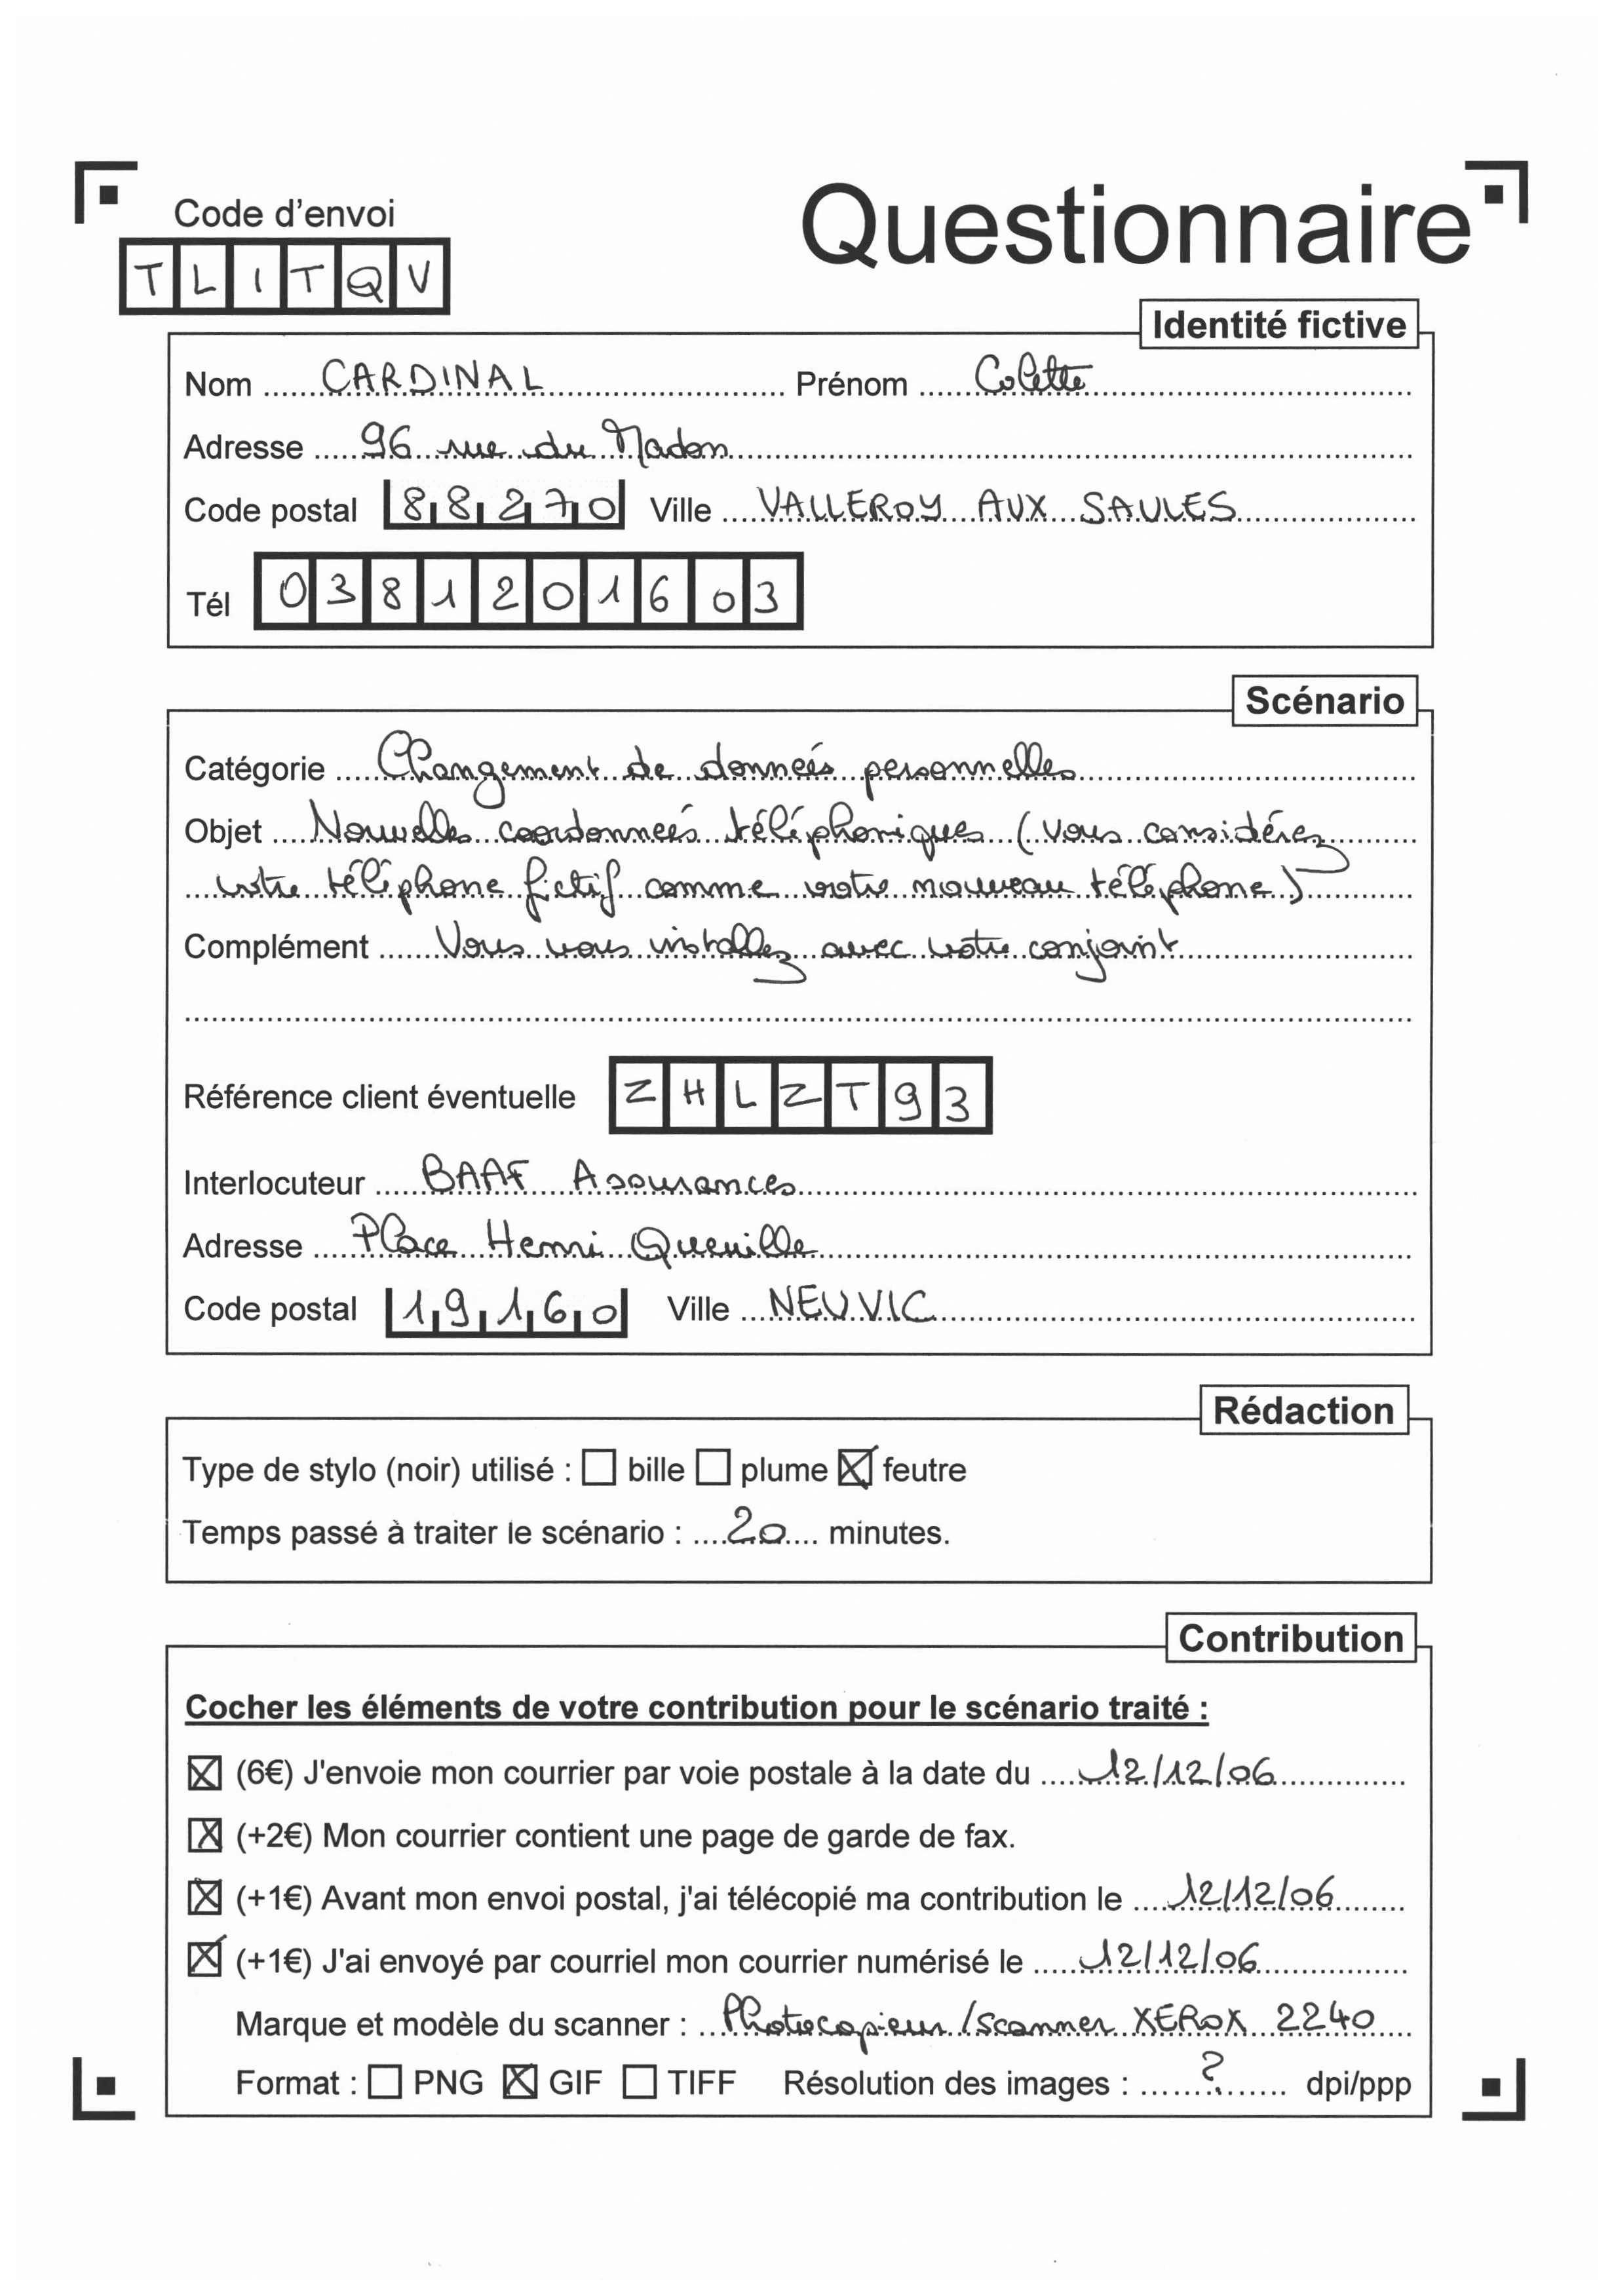 Code d'envoi
Questionnaire
TLITQV
Identité fictive
Nom CARDINAL Prénom Colette
Adresse 96 rue du Madon
Code postal 88270 Ville VALLEROY AUX SAULES
Tél 0381201603
Scénario
Catégorie Changement de données personnelles
Objet Nouvelles coordonnées téléphoniques (vous considérez
votre téléphone fictif comme votre nouveau téléphone)
Complément Vous vous installez avec votre conjoint
Référence client éventuelle ZHLZT93
Interlocuteur BAAF Assurances
Adresse Place Henri Queuille
Code postal 19160 Ville NEUVIC
Rédaction
Type de stylo (noir) utilisé : ☐ bille ☐ plume ☒ feutre
Temps passé à traiter le scénario : 20 minutes.
Contribution
Cocher les éléments de votre contribution pour le scénario traité :
☒ (6€) J'envoie mon courrier par voie postale à la date du 12/12/06
☒ (+2€) Mon courrier contient une page de garde de fax.
☒ (+1€) Avant mon envoi postal, j'ai télécopié ma contribution le 12/12/06
☒ (+1€) J'ai envoyé par courriel mon courrier numérisé le 12/12/06
Marque et modèle du scanner : Photocopieur/scanner XEROX 2240
Format : ☐ PNG ☒ GIF ☐ TIFF Résolution des images : ? dpi/ppp